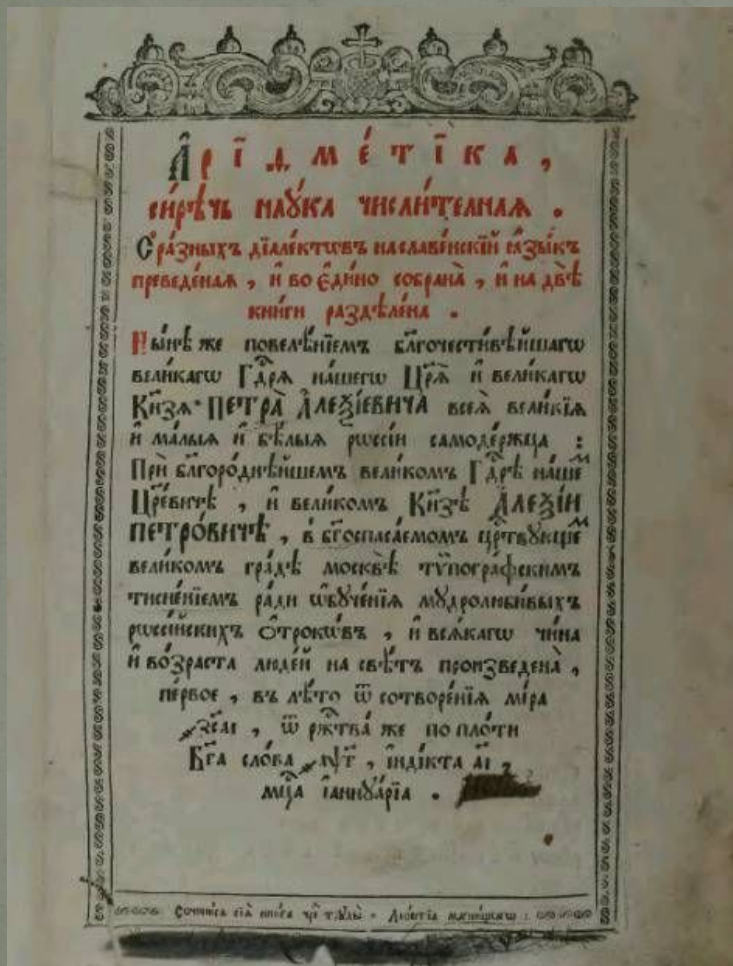 А҆рі̑ѳме́тїка,
си́рѣчь наꙋ́ка числи́телнаѧ.
С̾ра́зныхъ дїале́ктѡвъ наславе́нскїй ѧ҆зы́къ
преведе́наѧ, и҆ во є҆ди́но собрана̀, и҆ на двѣ̀
кни́ги раздѣле́на.
Нн҃ѣ же повелѣ́нїемъ бл҃гочести́вѣйшагѡ
вели́кагѡ Гдⷭ҇рѧ на́шегѡ Цр҃ѧ̀ и҆ вели́кагѡ
Кн҃зѧ ПЕТРА̀ А҆ЛЕѮІ́ЕВИЧА всеѧ̀ вели́кїѧ
и҆ ма́лыѧ и҆ бѣ́лыѧ рѡссі́и самоде́ржца:
Прѝ бл҃горо́днѣйшемъ вели́комъ Гдⷭ҇рѣ на́шеⷨ
Цр҃е́вичѣ, и҆ вели́комъ Кн҃зѣ А҆ЛЕѮІ́И
ПЕТРО́ВИЧѢ, в̾ бг҃оспаса́емомъ црⷭ҇твꙋ́ющеⷨ
вели́комъ гра́дѣ москвѣ̀ тѷпогра́фскимъ
тисне́нїемъ ра́ди ѡ҆бꙋче́нїѧ мꙋдролюби́выхъ
рѡссі́йскихъ ѻ҆́трокѡвъ, и҆ всѧ́кагѡ чи́на
и҆ во́зраста люде́й на свѣ́тъ произведена̀,
пе́рвое, въ лѣ́то ѿ сотворе́нїѧ мі́ра
҂зс҃аі, ѿ ржⷭ҇тва́ же по пло́ти
Бг҃а сло́ва ҂аѱг҃, і҆нді́кта а҃і,
мцⷭ҇а і҆аннꙋа́рїа.
Сочини́сѧ сїѧ̀ кни́га чрⷥ трꙋды̀ Лео́нтїа магни́цкагѡ: